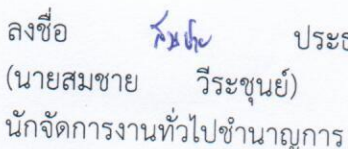 ลงชื่อ สมชาย ประธ
(นายสมชาย วีระชุนย์)
นักจัดการงานทั่วไปชำนาญการ